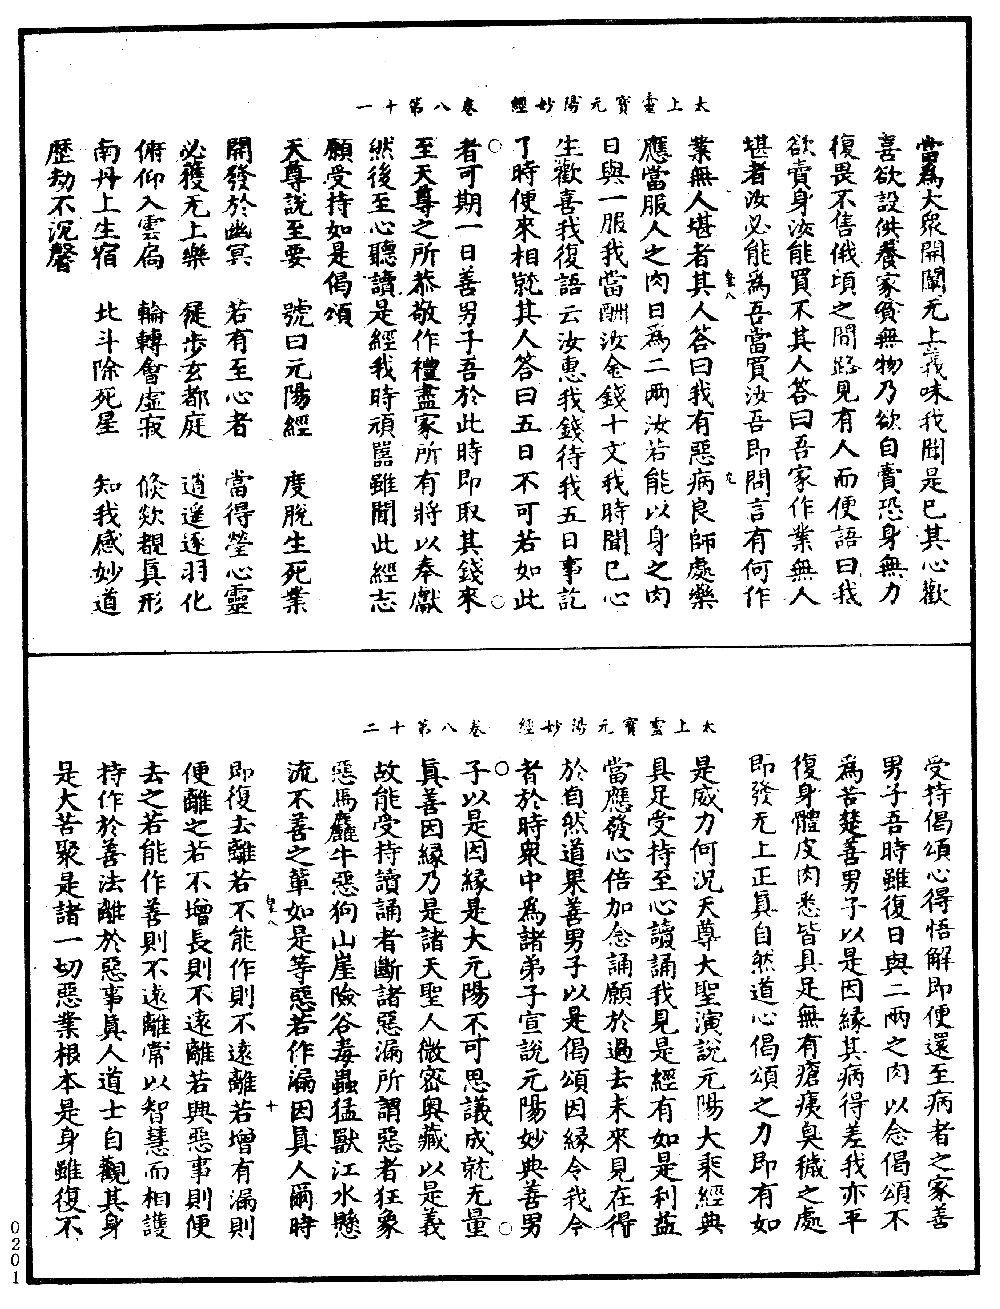 太上靈寶元陽妙經　卷八第十一
當爲大眾開闡无上義味我聞是已其心歡
喜欲設供養家貧無物乃欲自賣恐身無力
復畏不售俄頃之間路見有人而便語曰我
欲賣身汝能買不其人答曰吾家作業無人
堪者汝必能爲吾當買汝吾即問言有何作
皇八　九
業無人堪者其人答曰我有惡病良師處藥
應當服人之肉日爲二兩汝若能以身之肉
日與一服我當酬汝金錢十文我時聞已心
生歡喜我復語云汝惠我錢待我五日事訖
了時便來相就其人答曰五日不可若如此
者可期一日善男子吾於此時即取其錢來
至天尊之所恭敬作禮盡家所有將以奉獻
然後至心聽讀是經我時頑嚚雖聞此經志
願受持如是偈頌
天尊說至要　號曰元陽經　度脫生死業
開發於幽冥　若有至心者　當得瑩心靈
必獲无上樂　徒步玄都庭　逍遥逐羽化
俯仰入雲扃　輪轉會虛寂　倐欻覩真形
南丹上生宿　北斗除死星　知我感妙道
歷劫不沉謦
太上靈寶元陽妙經　卷八第十二
受持偈頌心得悟解即便還至病者之家善
男子吾時雖復日與二兩之肉以念偈頌不
爲苦楚善男子以是因緣其病得差我亦平
復身體皮肉悉皆具足無有瘡痍臭穢之處
即發无上正真自然道心偈頌之力即有如
是威力何況天尊大聖演說元陽大乘經典
具足受持至心讀誦我見是經有如是利益
當應發心倍加念誦願於過去未來見在得
於自然道果善男子以是偈頌因緣令我今
者於時眾中爲諸弟子宣說元陽妙典善男
子以是因緣是大元陽不可思議成就无量
真善因緣乃是諸天聖人微密奥藏以是義
故能受持讀誦者斷諸惡漏所謂惡者狂象
惡馬麤牛惡狗山崖險谷毒蟲猛獸江水懸
流不善之輩如是等惡若作漏因真人爾時
皇八　十
即復去離若不能作則不遠離若增有漏則
便離之若不增長則不遠離若興惡事則便
去之若能作善則不遠離常以智慧而相護
持作於善法離於惡事真人道士自觀其身
是大苦聚是諸一切惡業根本是身雖復不
0201